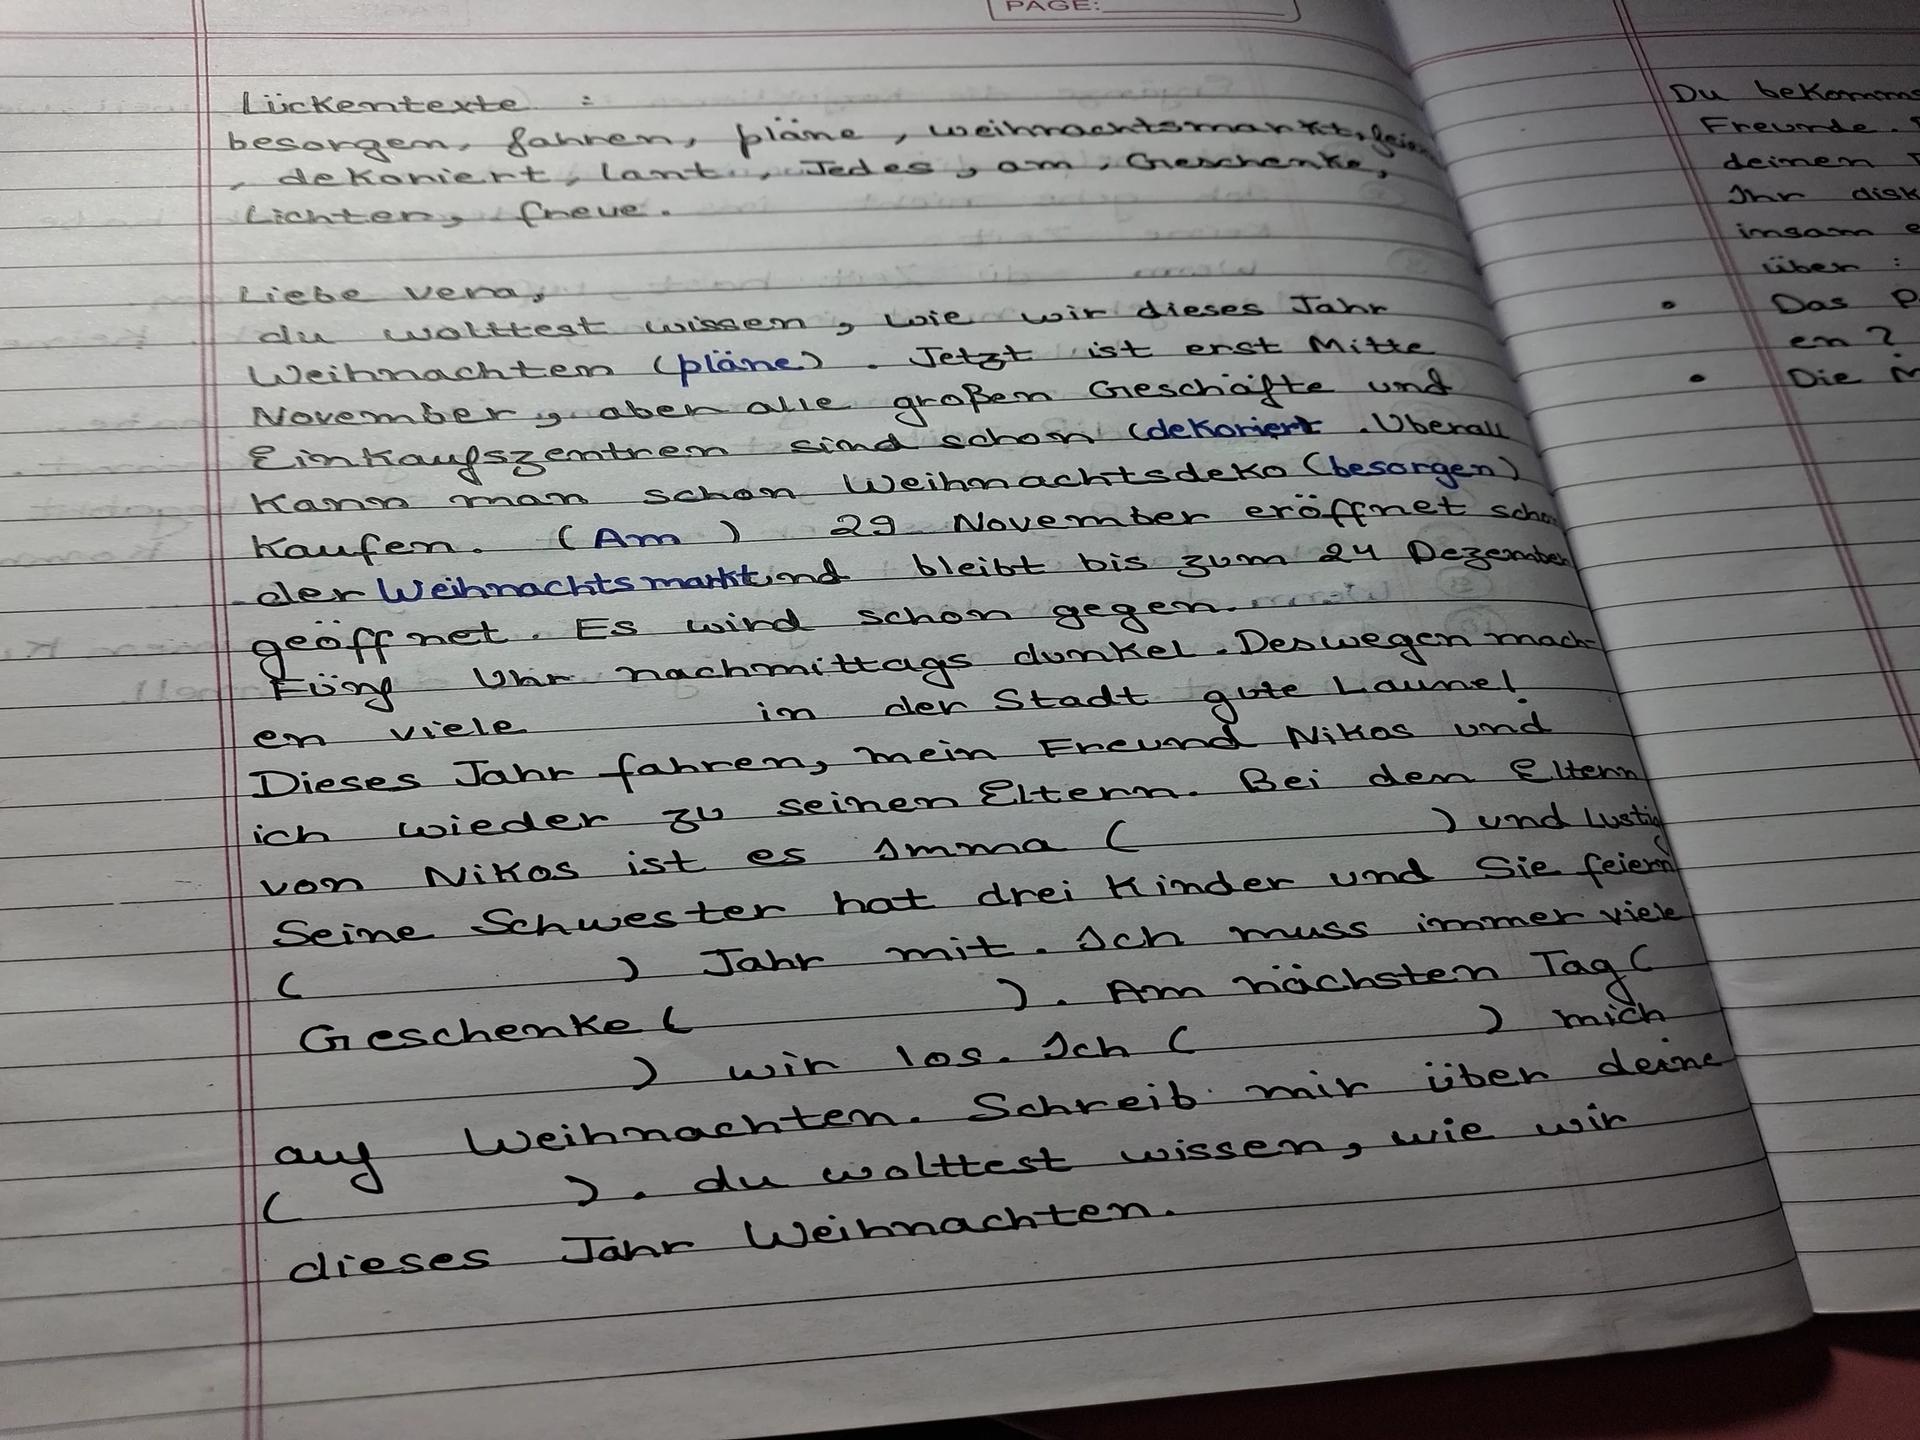 PAGE:
Lückentexte :
besorgen, fahren, pläne, weihnachtsmarkt, feiern
, dekoriert, lant, Jedes, am, Geschenke,
Lichter, freue.
Liebe vera,
du wolttest wissen, wie wir dieses Jahr
Weihnachten (pläne). Jetzt ist erst Mitte
November, aber alle großen Geschäfte und
Einkaufszentren sind schon (dekoriert. Uberall
kann man schon Weihnachtsdeko (besorgen)
kaufen. (Am) 29 November eröffnet scho
der Weihnachtsmarkt und bleibt bis zum 24 Dezember
geöffnet. Es wird schon gegen.
Fünf Uhr nachmittags dunkel. Deswegen mach-
en viele in der Stadt gute Laune!
Dieses Jahr fahren, mein Freund Nikos und
ich wieder zu seinen Eltern. Bei den Eltern
von Nikos ist es Imma ( ) und Lustig
Seine Schwester hat drei Kinder und Sie feiern
( ) Jahr mit. Ich muss immer viele
Geschenke ( ). Am nächsten Tag (
) wir los. Ich ( ) mich
auf Weihnachten. Schreib mir über deine
( ). du wolttest wissen, wie wir
dieses Jahr Weihnachten.
Du bekomms
Freunde.
deinen
Ihr disk
insam e
über :
• Das P
en?
• Die M